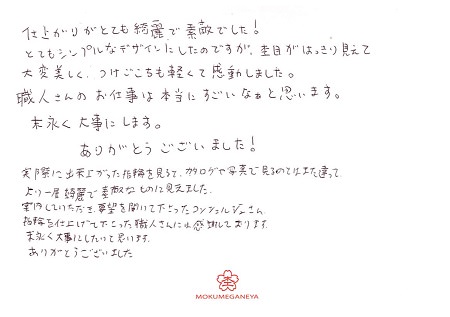 仕上がりがとても綺麗で素敵でした！
とてもシンプルなデザインにしたのですが、杢目がはっきり見えて
大変美しく、つけごこちも軽くて感動しました。
職人さんのお仕事は本当にすごいなぁと思います。
末永く大事にします。
ありがとうございました！
実際に出来上がった指輪を見るて、カタログや写真で見るのてはまた違って
より一層綺麗で素敵なものに見えました。
対応していただき、要望を聞いて下さったコンシェルジュさん、
指輪を仕上げて下さった職人さんには感謝しております。
末永く大事にしたいと思います。
ありがとうございました
MOKUMEGANEYA